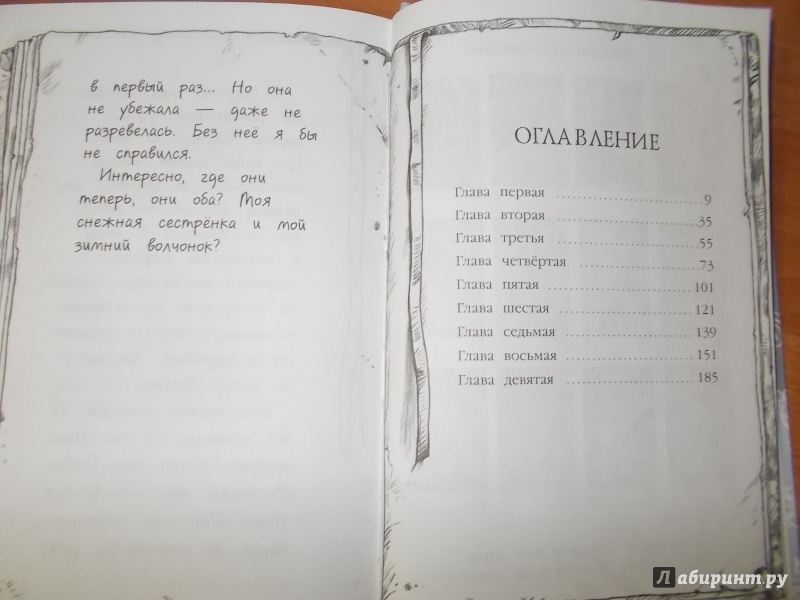 в первый раз... Но она
не убежала — даже не
разревелась. Без неё я бы
не справился.
Интересно, где они
теперь, они оба? Моя
снежная сестрёнка и мой
зимний волчонок?
ОГЛАВЛЕНИЕ
Глава первая ........ 9
Глава вторая ........ 35
Глава третья ........ 55
Глава четвёртая ........ 73
Глава пятая ........ 101
Глава шестая ........ 121
Глава седьмая ........ 139
Глава восьмая ........ 151
Глава девятая ........ 185
Лабиринт.ру